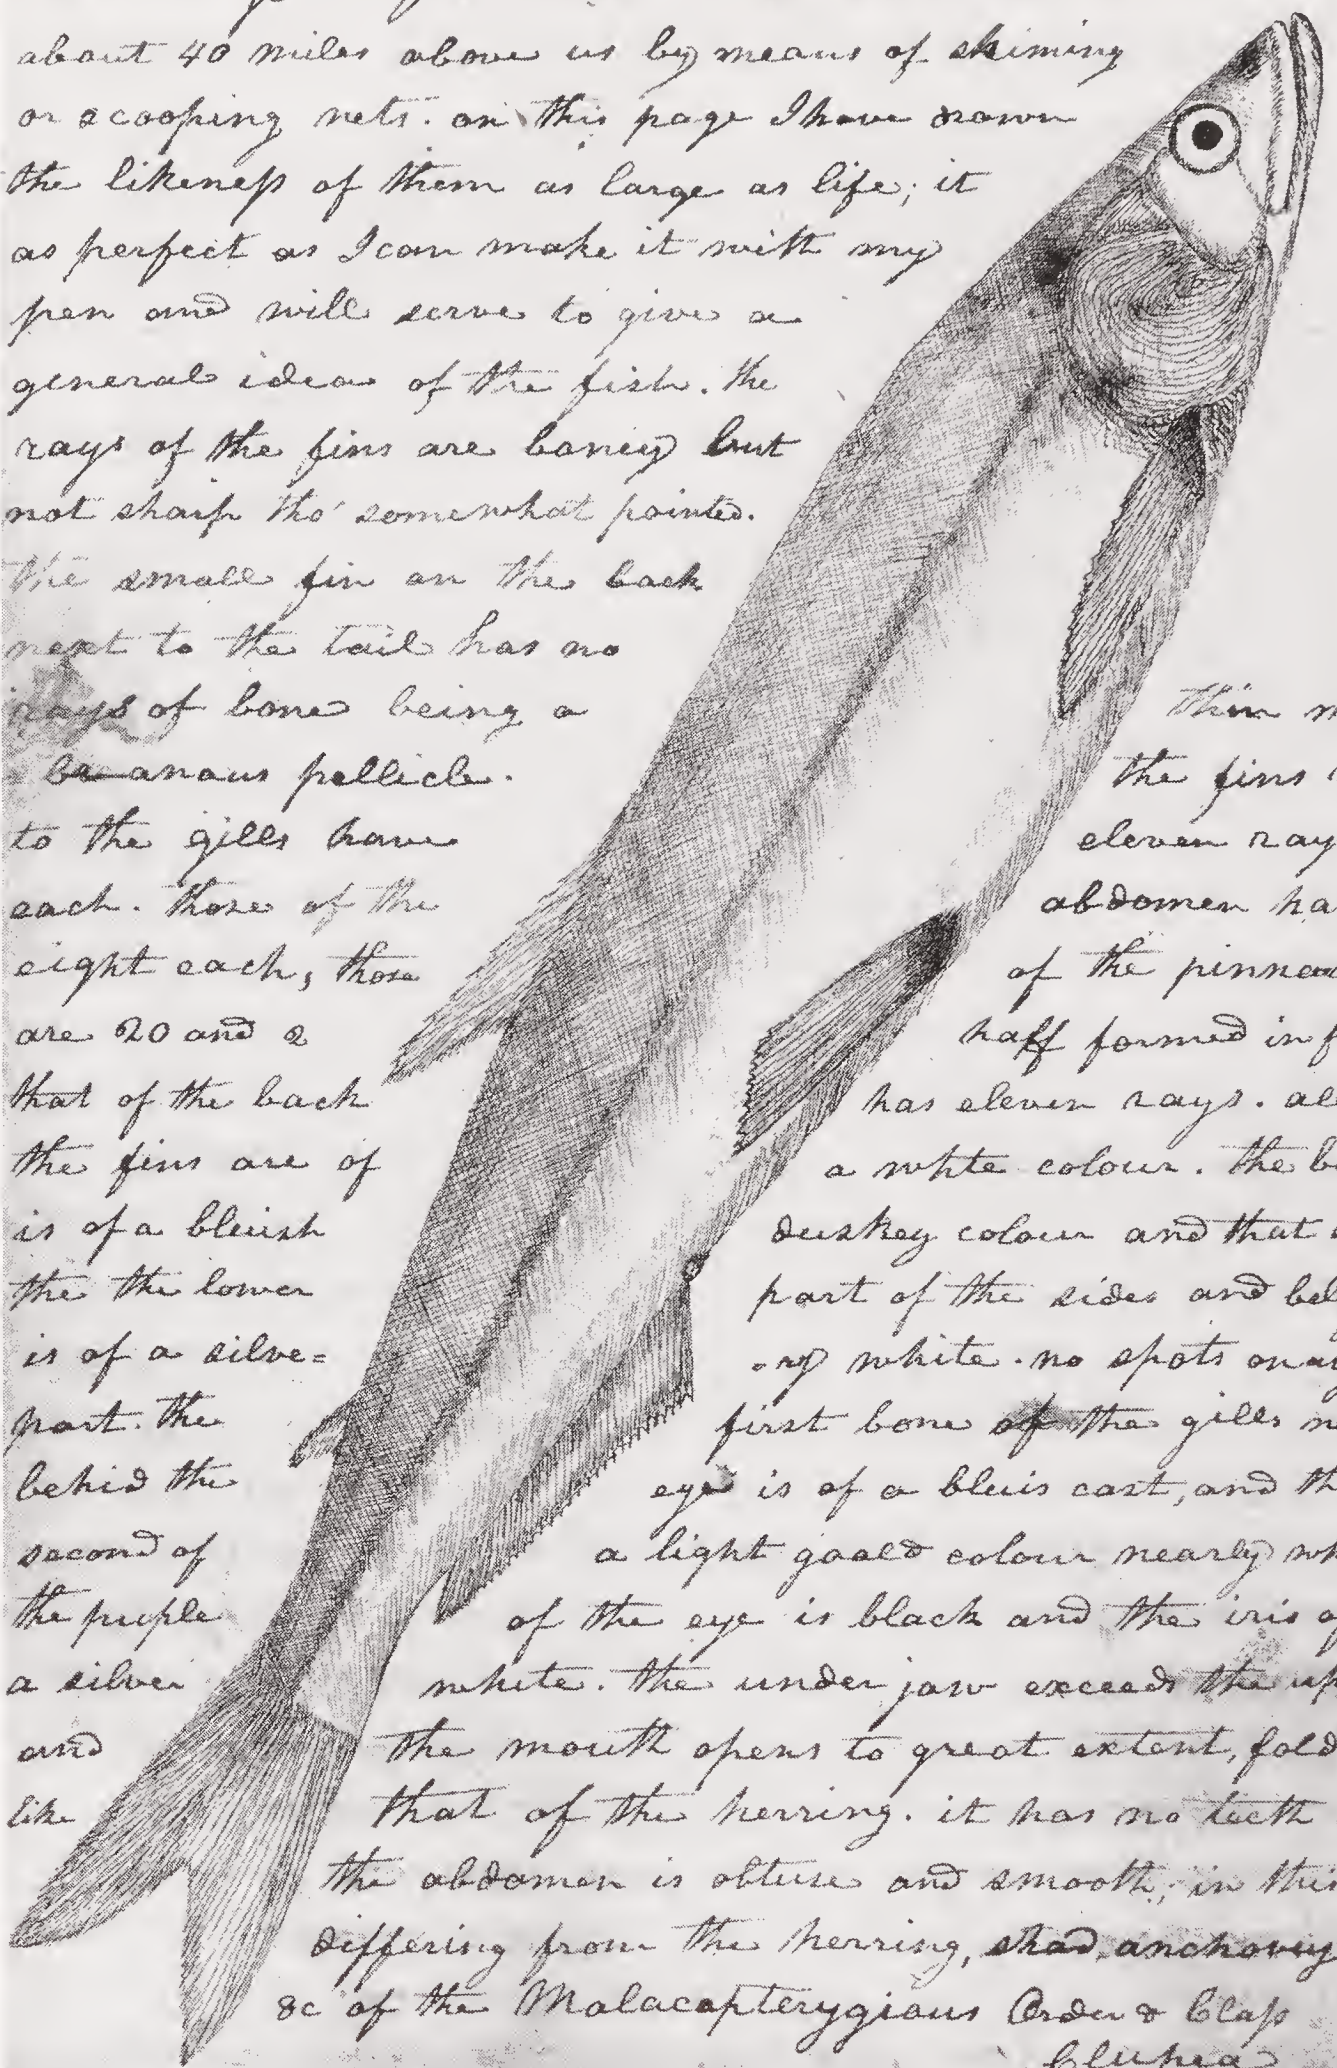 about 40 miles above us by means of skiming
or scooping nets. on this page I have drawn
the likeness of them as large as life; it
as perfect as I can make it with my
pen and will serve to give a
general idea of the fish. the
rays of the fins are boney but
not sharp tho' somewhat pointed.
the small fin on the back
next to the tail has no
rays of bone being a thin m
branous pellicle. the fins
to the gills have eleven ray
each. those of the abdomen ha
eight each, those of the pinnea
are 20 and 2 haff formed in f
that of the back has eleven rays. al
the fins are of a white colour. the b
is of a bleuish duskey colour and that
the the lower part of the sides and bel
is of a silve= -ry white. no spots on a
part. the first bone of the gills n
behid the eye is of a bluis cast, and th
second of a light goald colour nearly wh
the puple of the eye is black and the iris o
a silver white. the under jaw exceeds the up
and the mouth opens to great extent, fold
like that of the herring. it has no teeth
the abdomen is obtuse and smooth; in this
differing from the herring, shad, anchovey
&c of the Malacapterygious Order & Class
Clupea